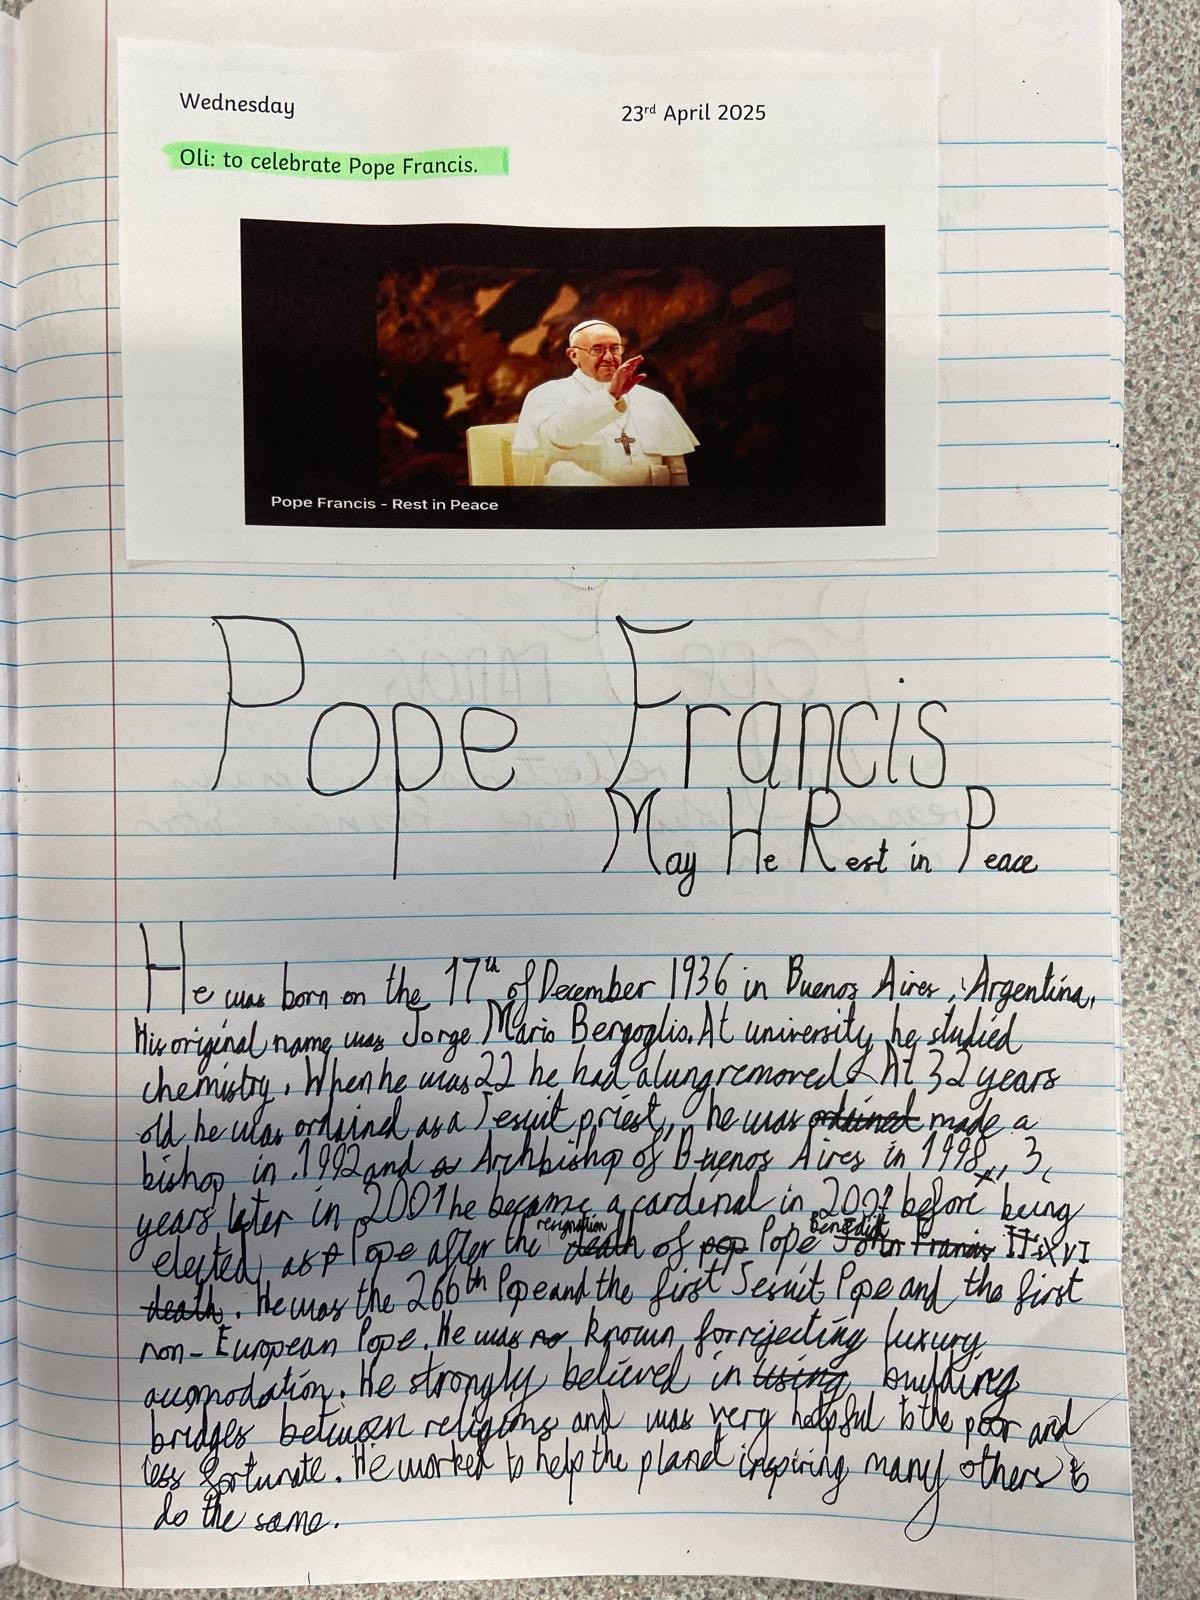 Wednesday 23rd April 2025
Oli: to celebrate Pope Francis.
Pope Francis - Rest in Peace
Pope Francis
May He Rest in Peace
He was born on the 17th of December 1936 in Buenos Aires, Argentina.
His original name was Jorge Mario Bergoglio. At university, he studied
chemistry. When he was 22 he had a lung removed & At 32 years
old he was ordained as a Jesuit priest, he was ordained made a
bishop in 1992 and a Archbishop of Buenos Aires in 1998, 3
years later in 2001 he became a cardenal in 2001 before being
resignation Benedict
elected as P Pope after the death of pop Pope John Francis II XVI
death. He was the 266th Pope and the first Jesuit Pope and the first
non-European Pope. He was no known for rejecting luxury
accomodation. He strongly believed in using building
bridges between religions and was very helpful to the poor and
less fortunate. He worked to help the planet inspiring many others to
do the same.